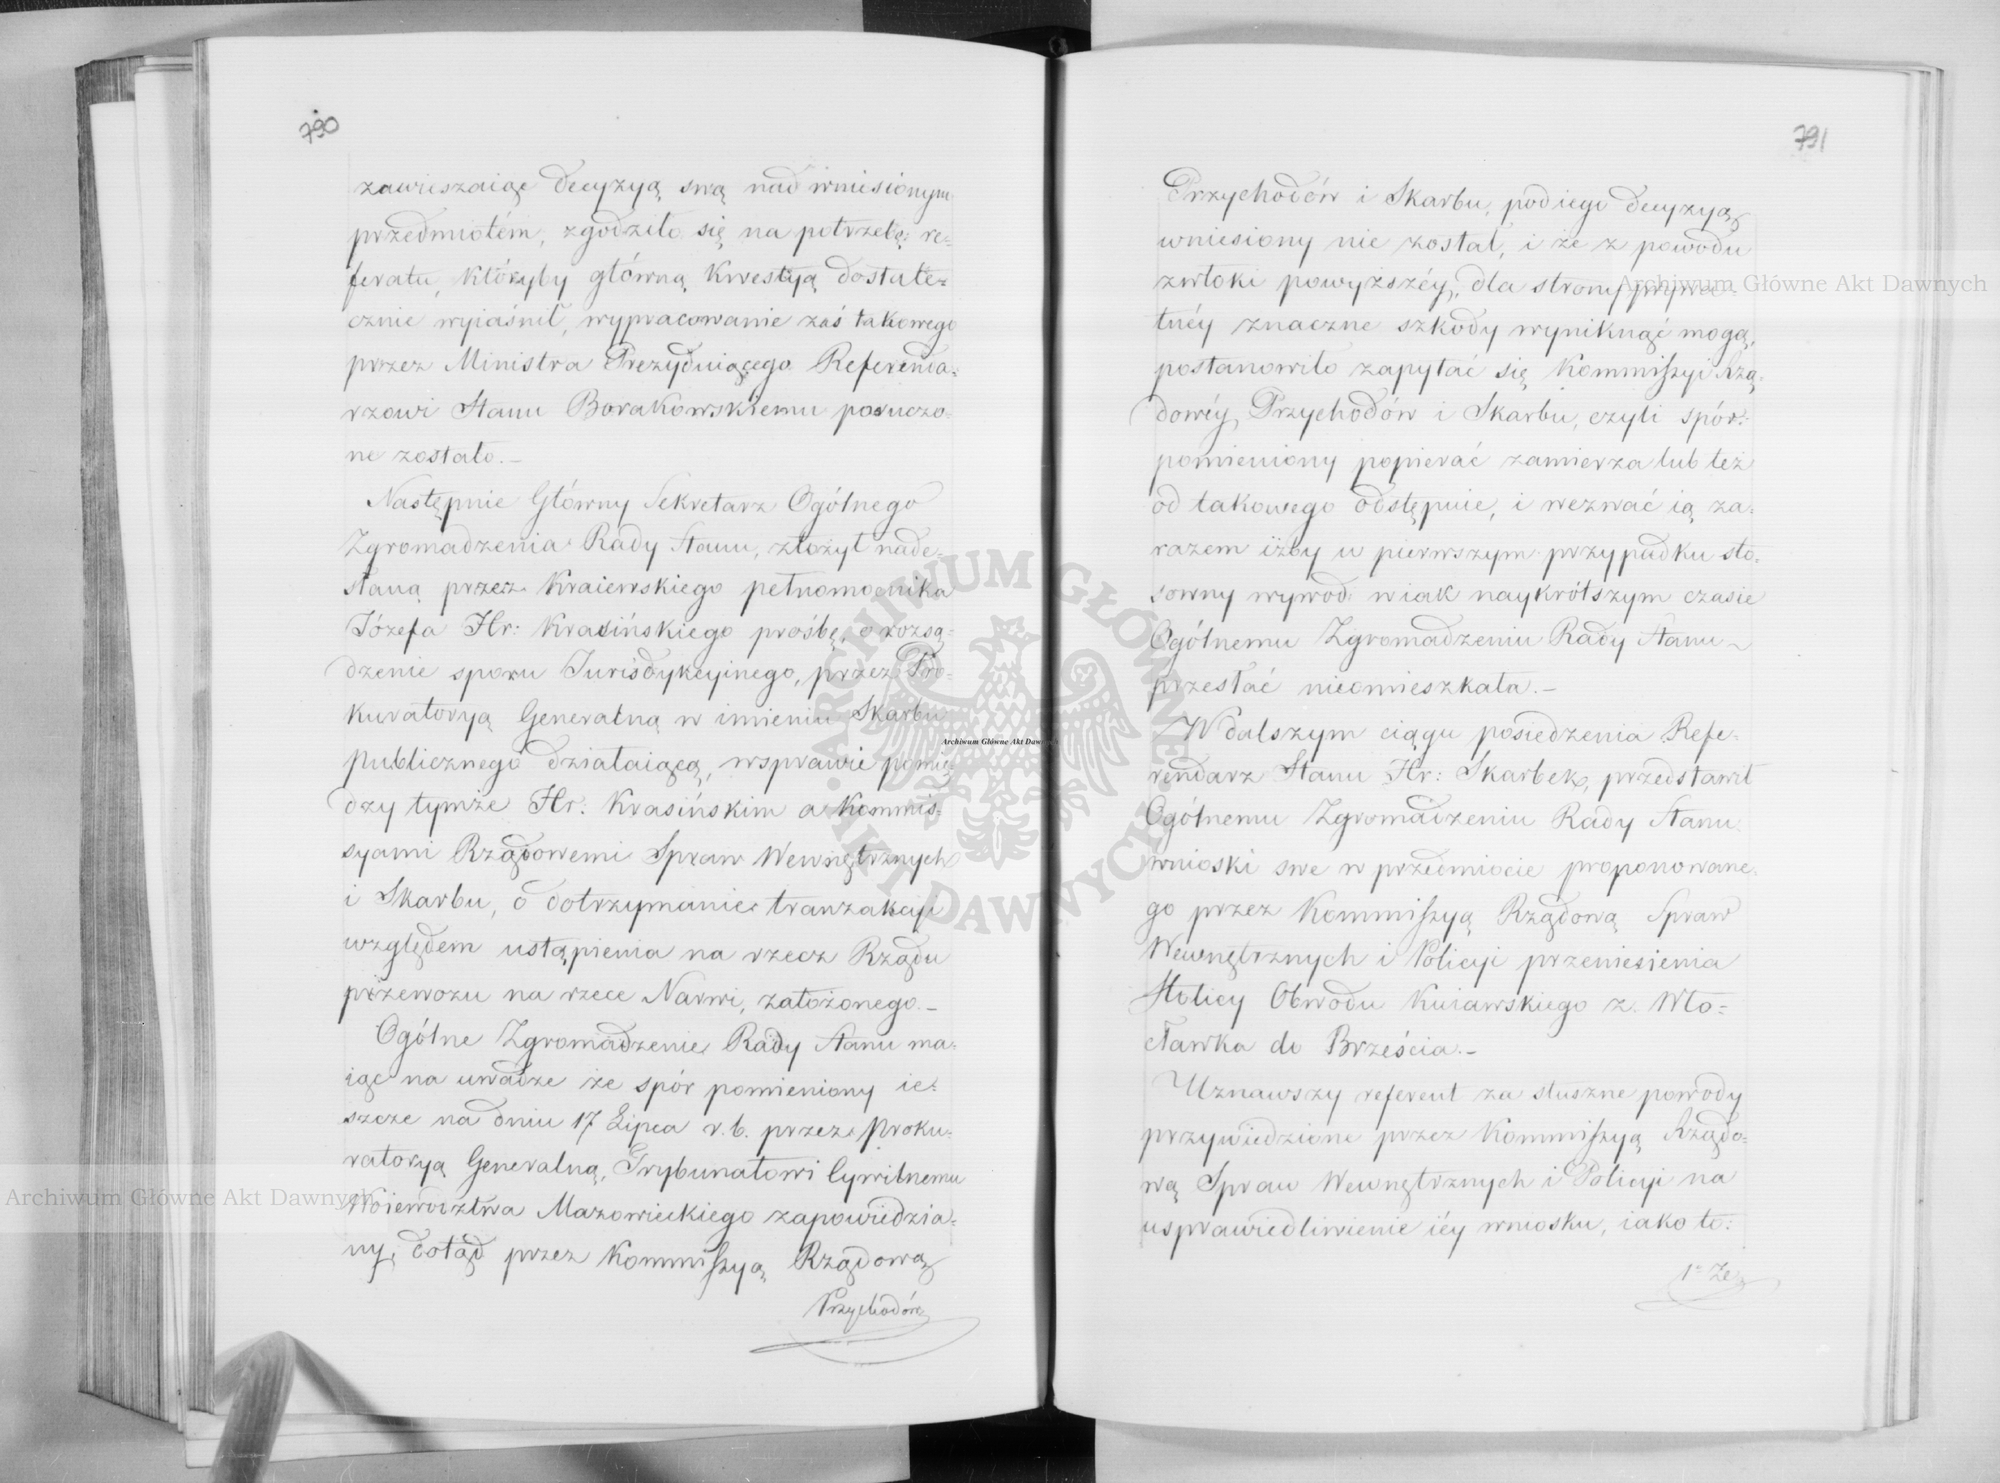 790
zawieszaiąc decyzyą swą nad wniesionym
przedmiotem, zgodziło się na potrzebę re-
feratu, któryby główną kwestyą dostate-
cznie wyiaśnił, wypracowanie zaś takowego
przez Ministra Prezyduiącego Referenda-
rzowi Stanu Borakowskiemu poruczo-
ne zostało.-
Następnie Główny Sekretarz Ogólnego
Zgromadzenia Rady Stanu, złożył nade-
słaną przez Kraiewskiego pełnomocnika
Józefa Hr: Krasińskiego prośbę, o rozsą-
dzenie sporu Jurisdykcyinego, przez Pro-
kuratoryą Generalną w imieniu Skarbu
publicznego działaiącą, wsprawie pomię-
dzy tymże Hr: Krasińskim a Kommis-
syami Rządowemi Spraw Wewnętrznych
i Skarbu, o dotrzymanie tranzakcyi
względem ustąpienia na rzecz Rządu
przewozu na rzece Narwi, założonego.-
Ogólne Zgromadzenie Rady Stanu ma-
iąc na uwadze że spór pomieniony ie-
szcze na dniu 17 Lipca r.b. przez Proku-
ratoryą Generalną, Trybunałowi Cywilnemu
Woiewództwa Mazowieckiego zapowiedzia-
ny, dotąd przez Kommissyą Rządową
Przychodów
791
Przychodów i Skarbu, pod iego decyzyą
wniesiony nie został, i że z powodu
zwłoki powyższéy, dla strony prywa-
tnéy znaczne szkody wyniknąć mogą,
postanowiło zapytać się Kommissyi Rzą-
dowéy Przychodów i Skarbu, czyli spór
pomieniony popierać zamierza lub też
od takowego odstępuie, i wezwać ią za-
razem iżby w pierwszym przypadku sto-
sowny wywód w iak naykrótszym czasie
Ogólnemu Zgromadzeniu Rady Stanu
przesłać nieomieszkała.-
W dalszym ciągu posiedzenia Refe-
rendarz Stanu Hr: Skarbek, przedstawił
Ogólnemu Zgromadzeniu Rady Stanu
wnioski swe w przedmiocie proponowane-
go przez Kommissyą Rządową Spraw
Wewnętrznych i Policyi przeniesienia
Stolicy Obwodu Kuiawskiego z Wło-
cławka do Brześcia.-
Uznawszy referent za słuszne powody
przywiedzione przez Kommissyą Rządo-
wą Spraw Wewnętrznych i Policyi na
usprawiedliwienie iéy wniosku, iako to:
1º Że
Archiwum Główne Akt Dawnych
Archiwum Główne Akt Dawnych
Archiwum Główne Akt Dawnych
ARCHIWUM GŁÓWNE · AKT DAWNYCH ·